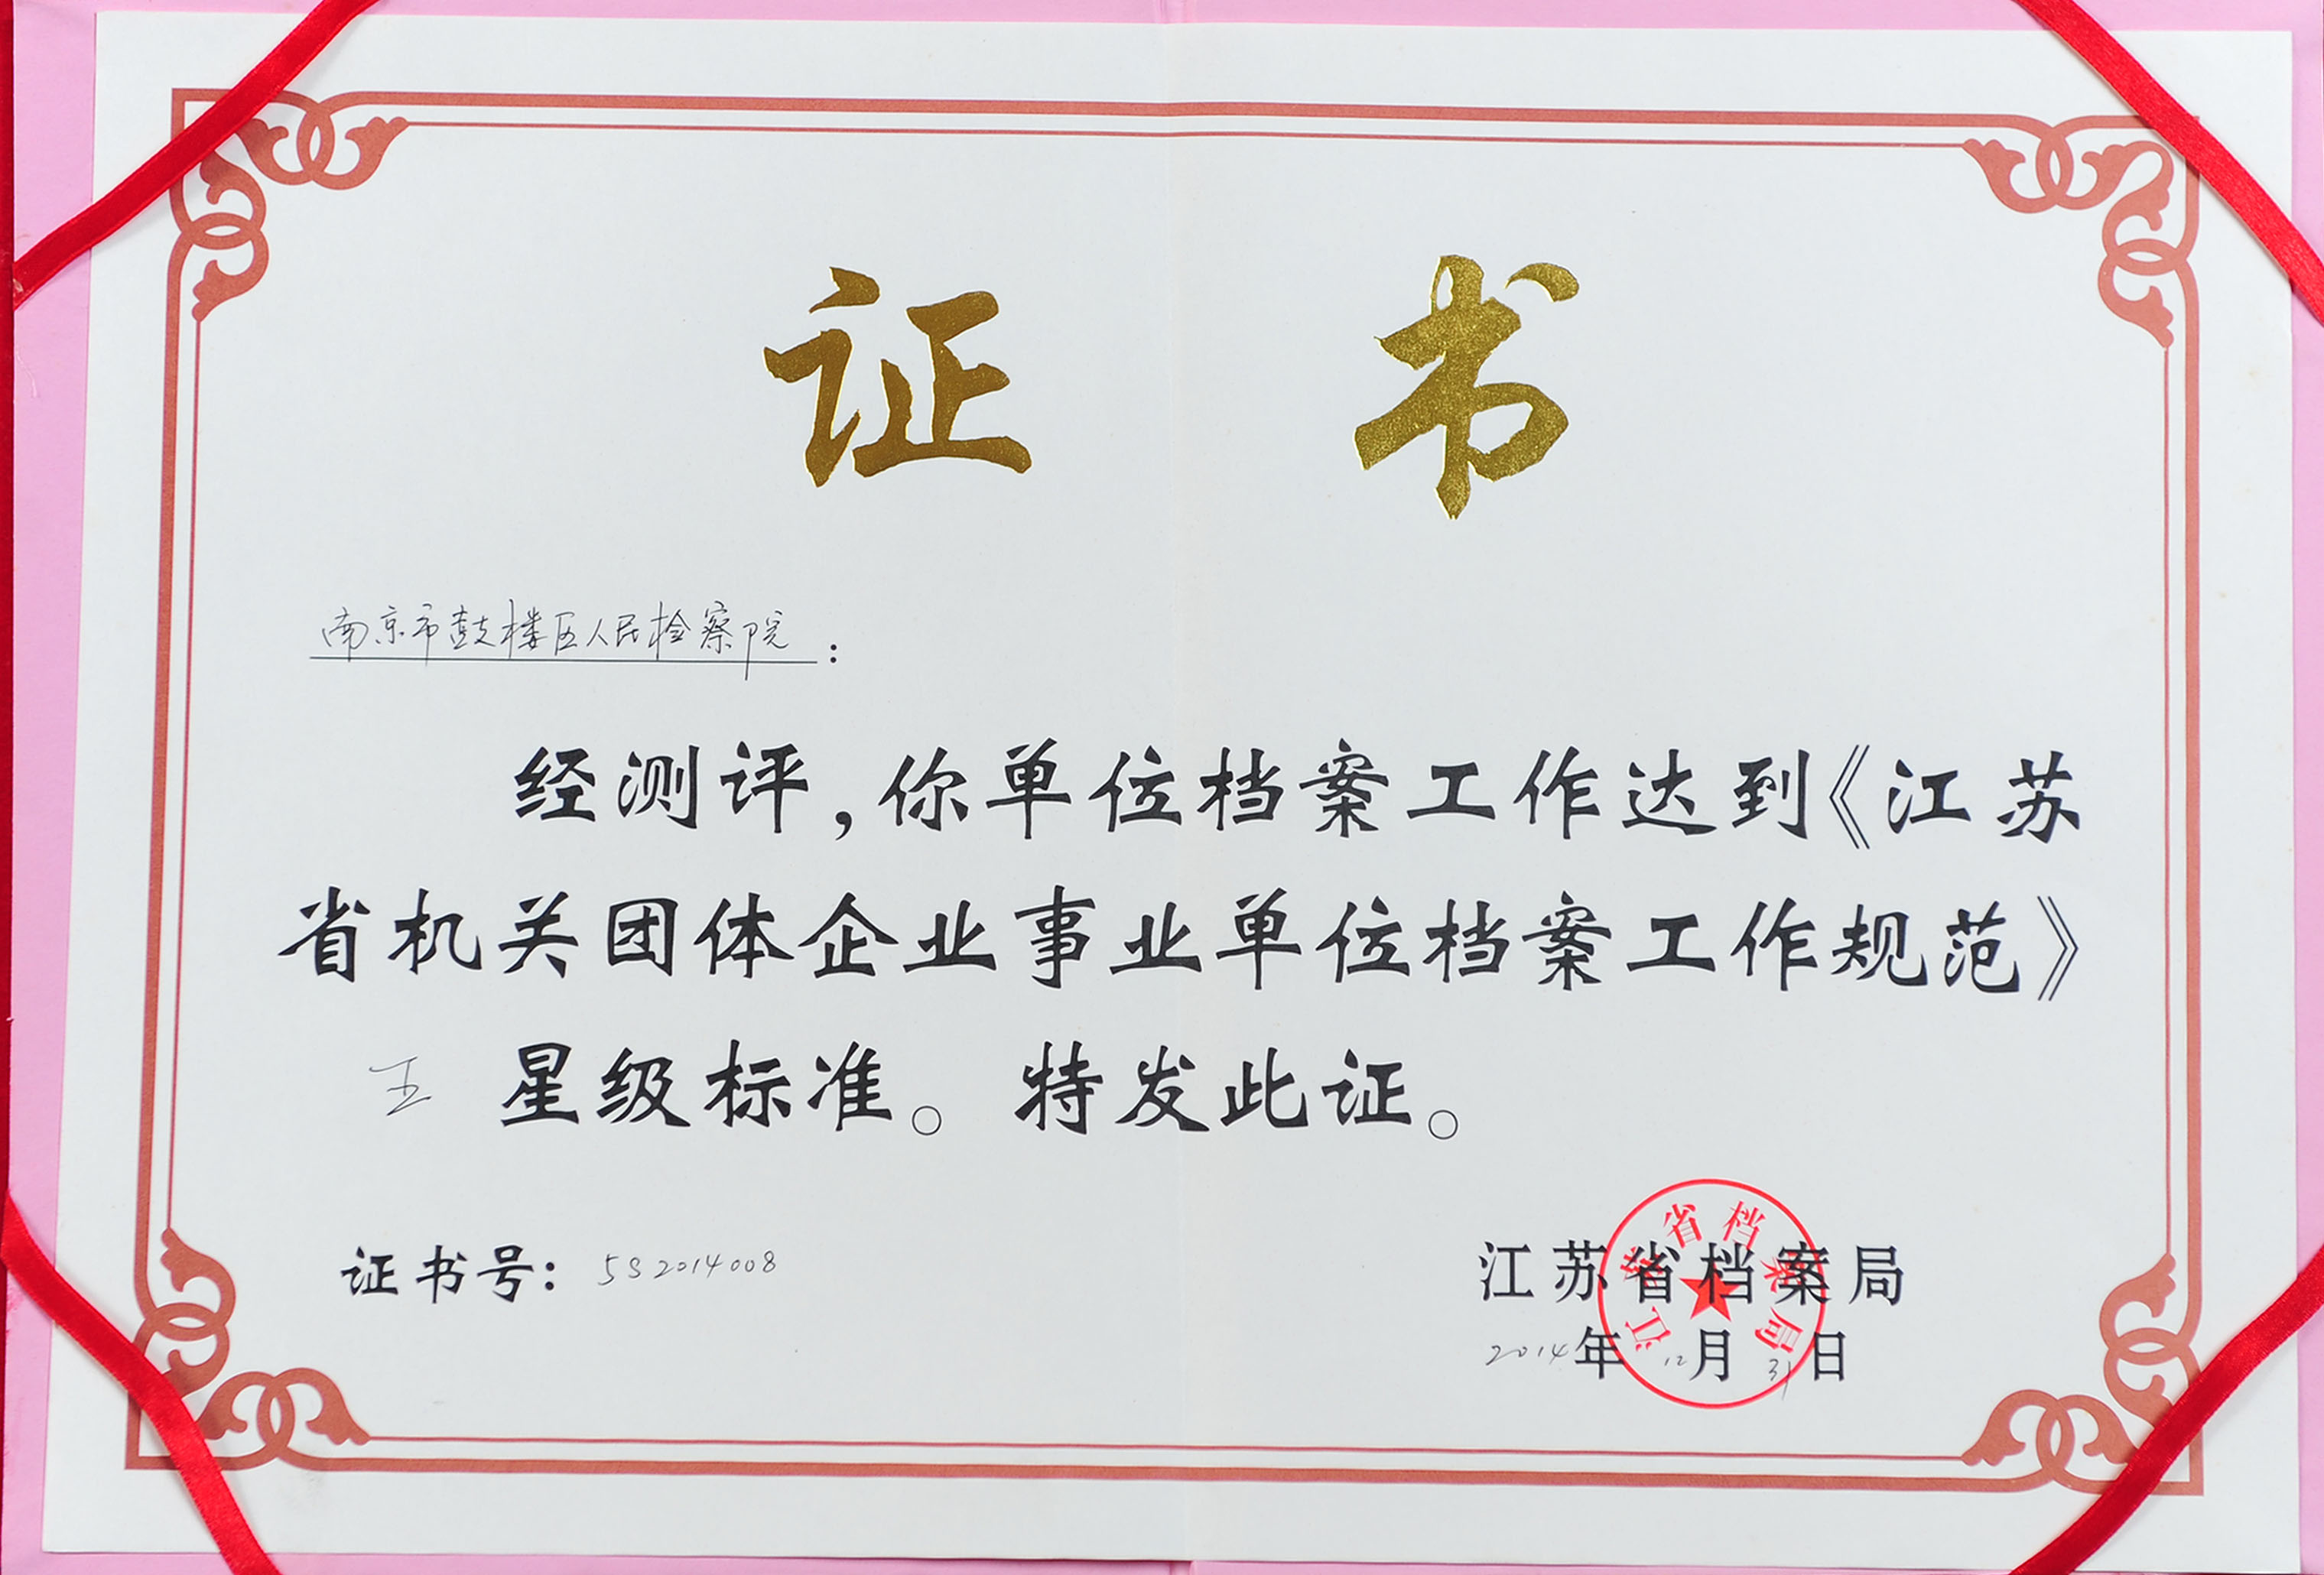 证书
南京市鼓楼区人民检察院：
经测评，你单位档案工作达到《江苏
省机关团体企业事业单位档案工作规范》
五 星级标准。特发此证。
证书号：5S2014008
江苏省档案局
2014年12月31日
江苏省档案局